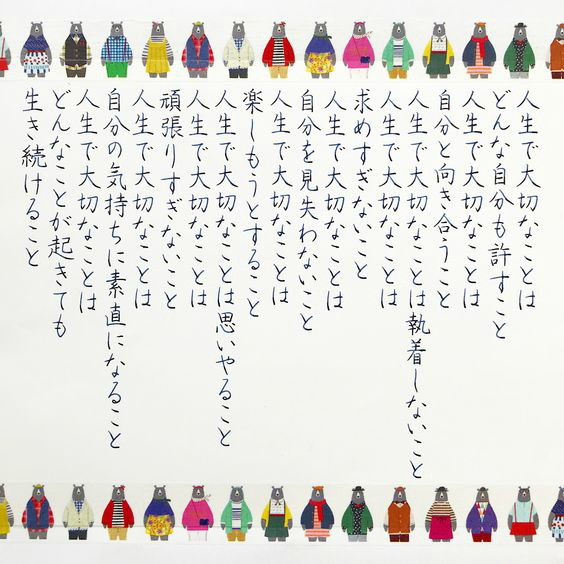 人生で大切なことは
どんな自分も許すこと
人生で大切なことは
自分と向き合うこと
人生で大切なことは執着しないこと
人生で大切なことは
求めすぎないこと
人生で大切なことは
自分を見失わないこと
人生で大切なことは
楽しもうとすること
人生で大切なことは思いやること
人生で大切なことは
頑張りすぎないこと
人生で大切なことは
自分の気持ちに素直になること
人生で大切なことは
どんなことが起きても
生き続けること